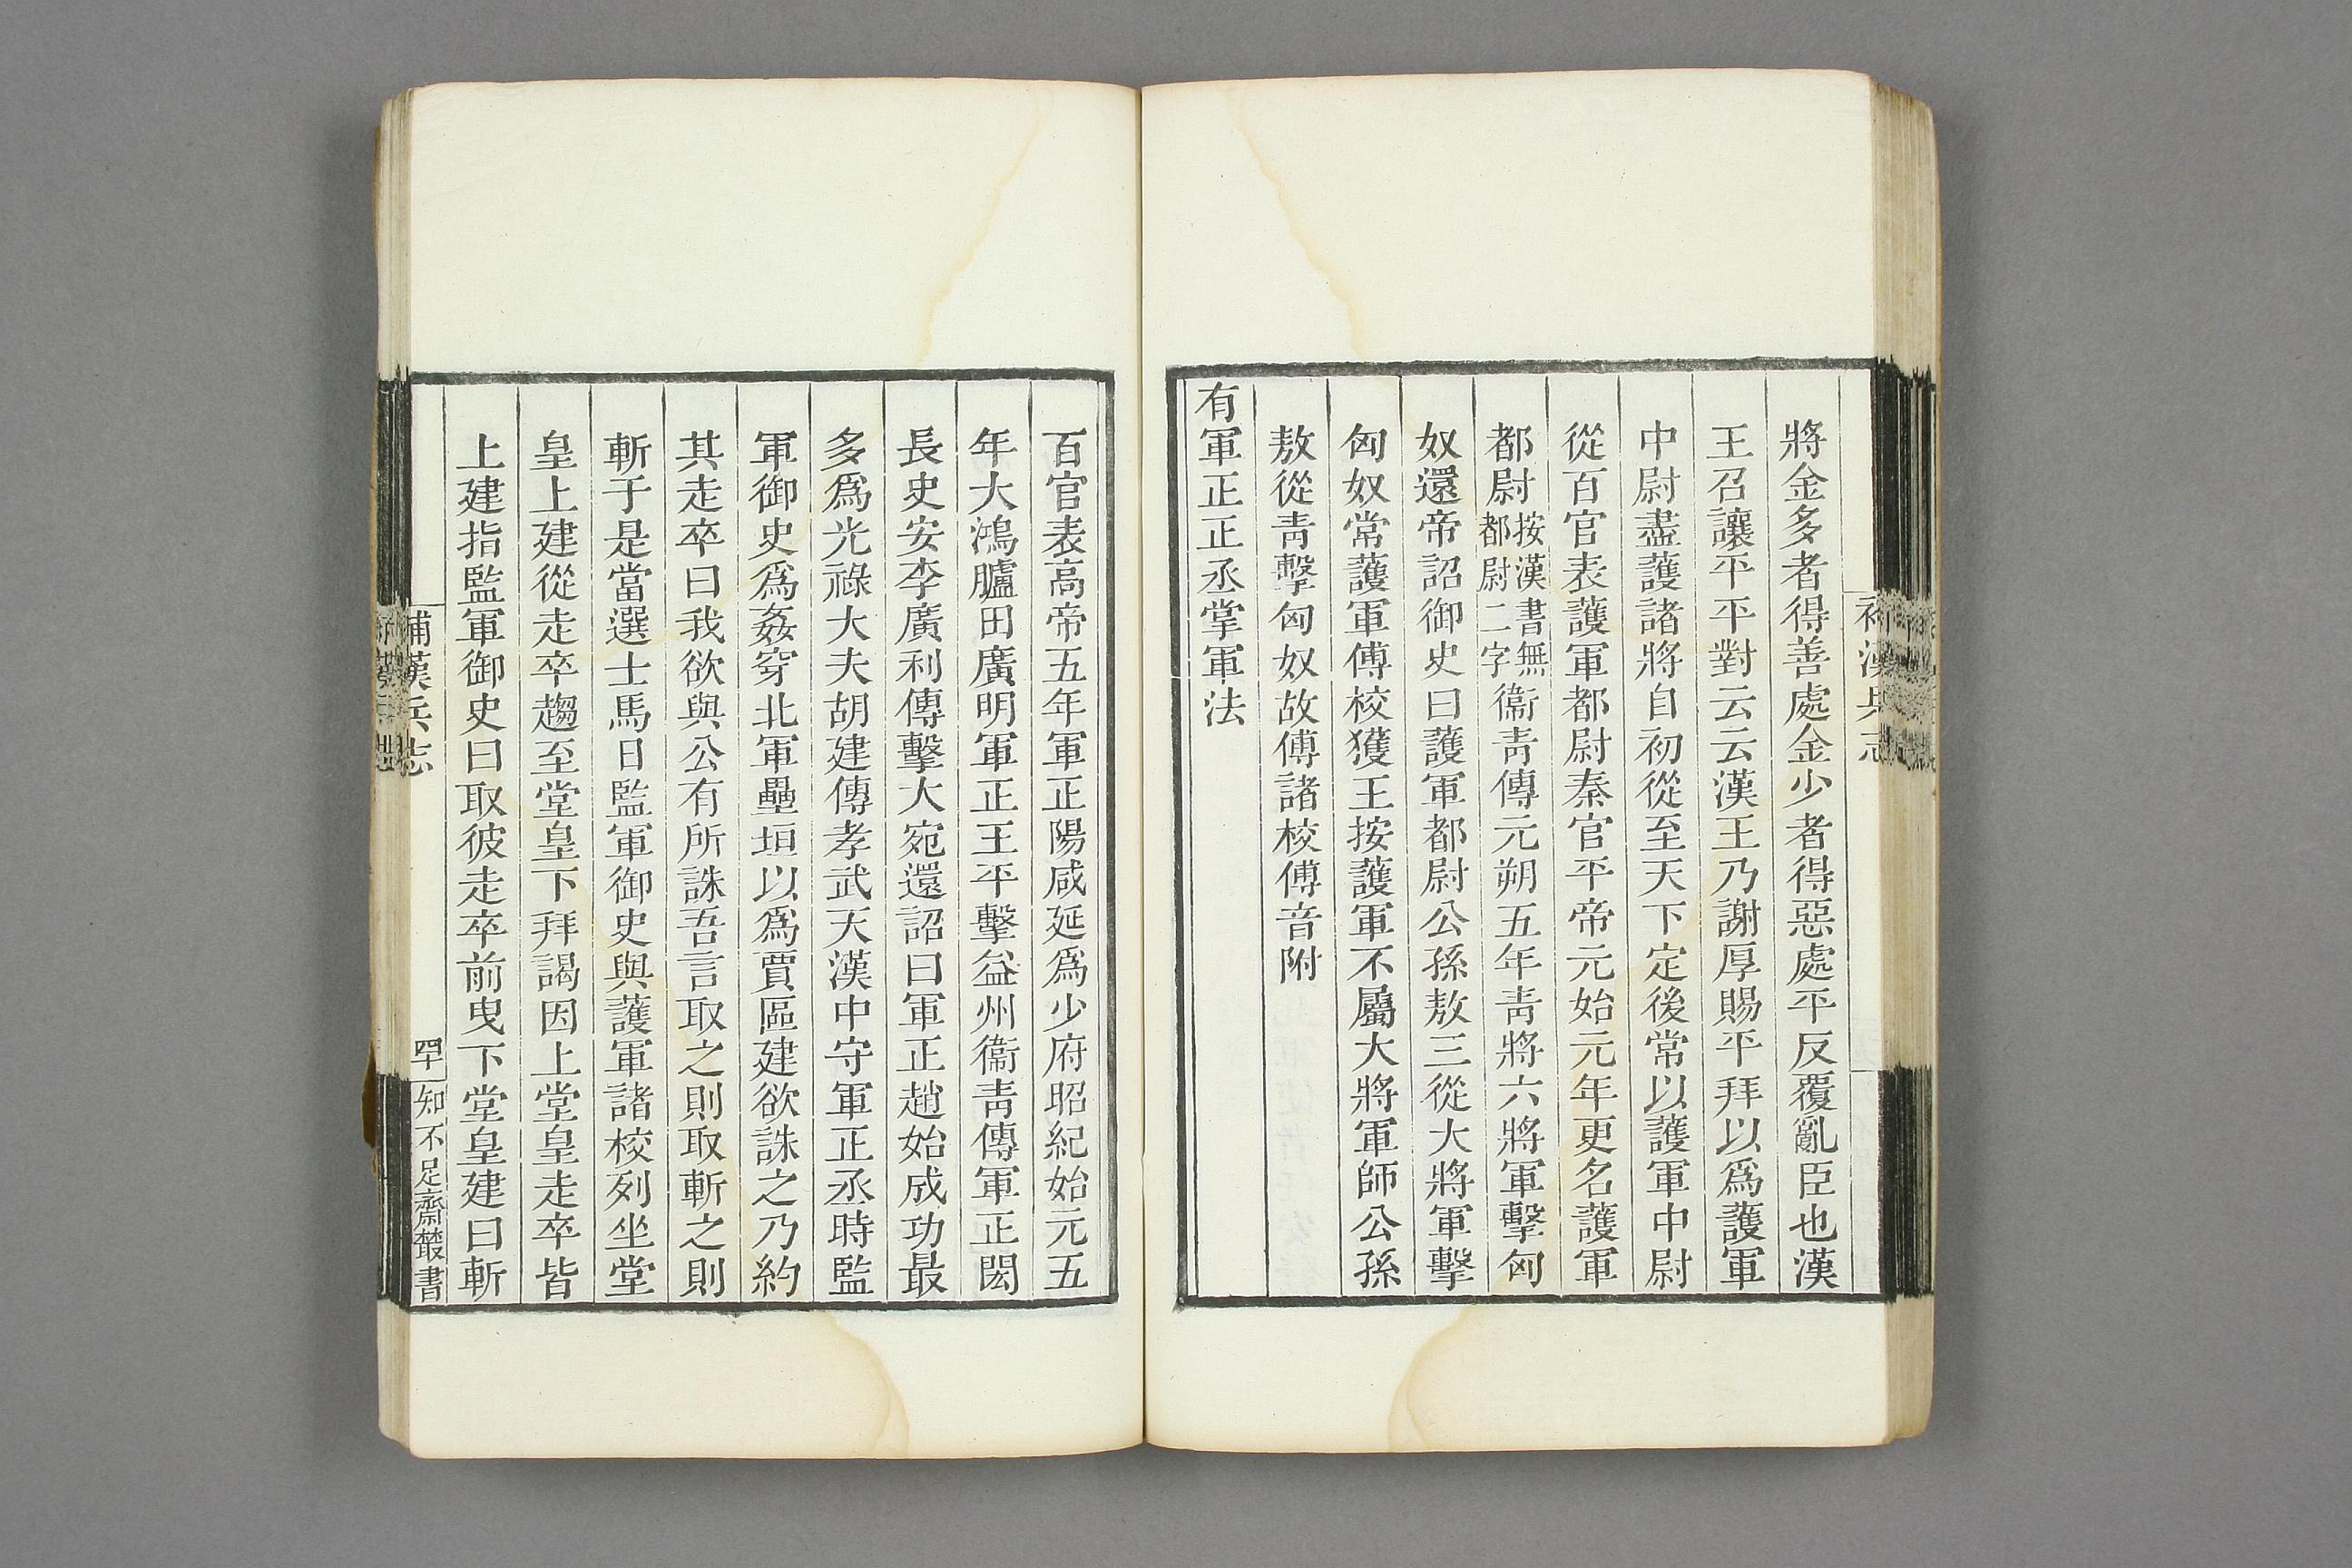 補漢兵志
將金多者得善處金少者得惡處平反覆亂臣也漢
王召讓平平對云云漢王乃謝厚賜平拜以爲護軍
中尉盡護諸將自初從至天下定後常以護軍中尉
從百官表護軍都尉秦官平帝元始元年更名護軍
都尉按漢書無都尉二字衞靑傳元朔五年靑將六將軍擊匈
奴還帝詔御史曰護軍都尉公孫敖三從大將軍擊
匈奴常護軍傅校獲王按護軍不屬大將軍師公孫
敖從靑擊匈奴故傅諸校傅音附
有軍正正丞掌軍法
百官表高帝五年軍正陽咸延爲少府昭紀始元五
年大鴻臚田廣明軍正王平擊益州衞靑傳軍正閎
長史安李廣利傳擊大宛還詔曰軍正趙始成功最
多爲光祿大夫胡建傳孝武天漢中守軍正丞時監
軍御史爲姦穿北軍壘垣以爲賈區建欲誅之乃約
其走卒曰我欲與公有所誅吾言取之則取斬之則
斬于是當選士馬日監軍御史與護軍諸校列坐堂
皇上建從走卒趨至堂皇下拜謁因上堂皇走卒皆
上建指監軍御史曰取彼走卒前曳下堂皇建曰斬
補漢兵志
四十
知不足齋叢書